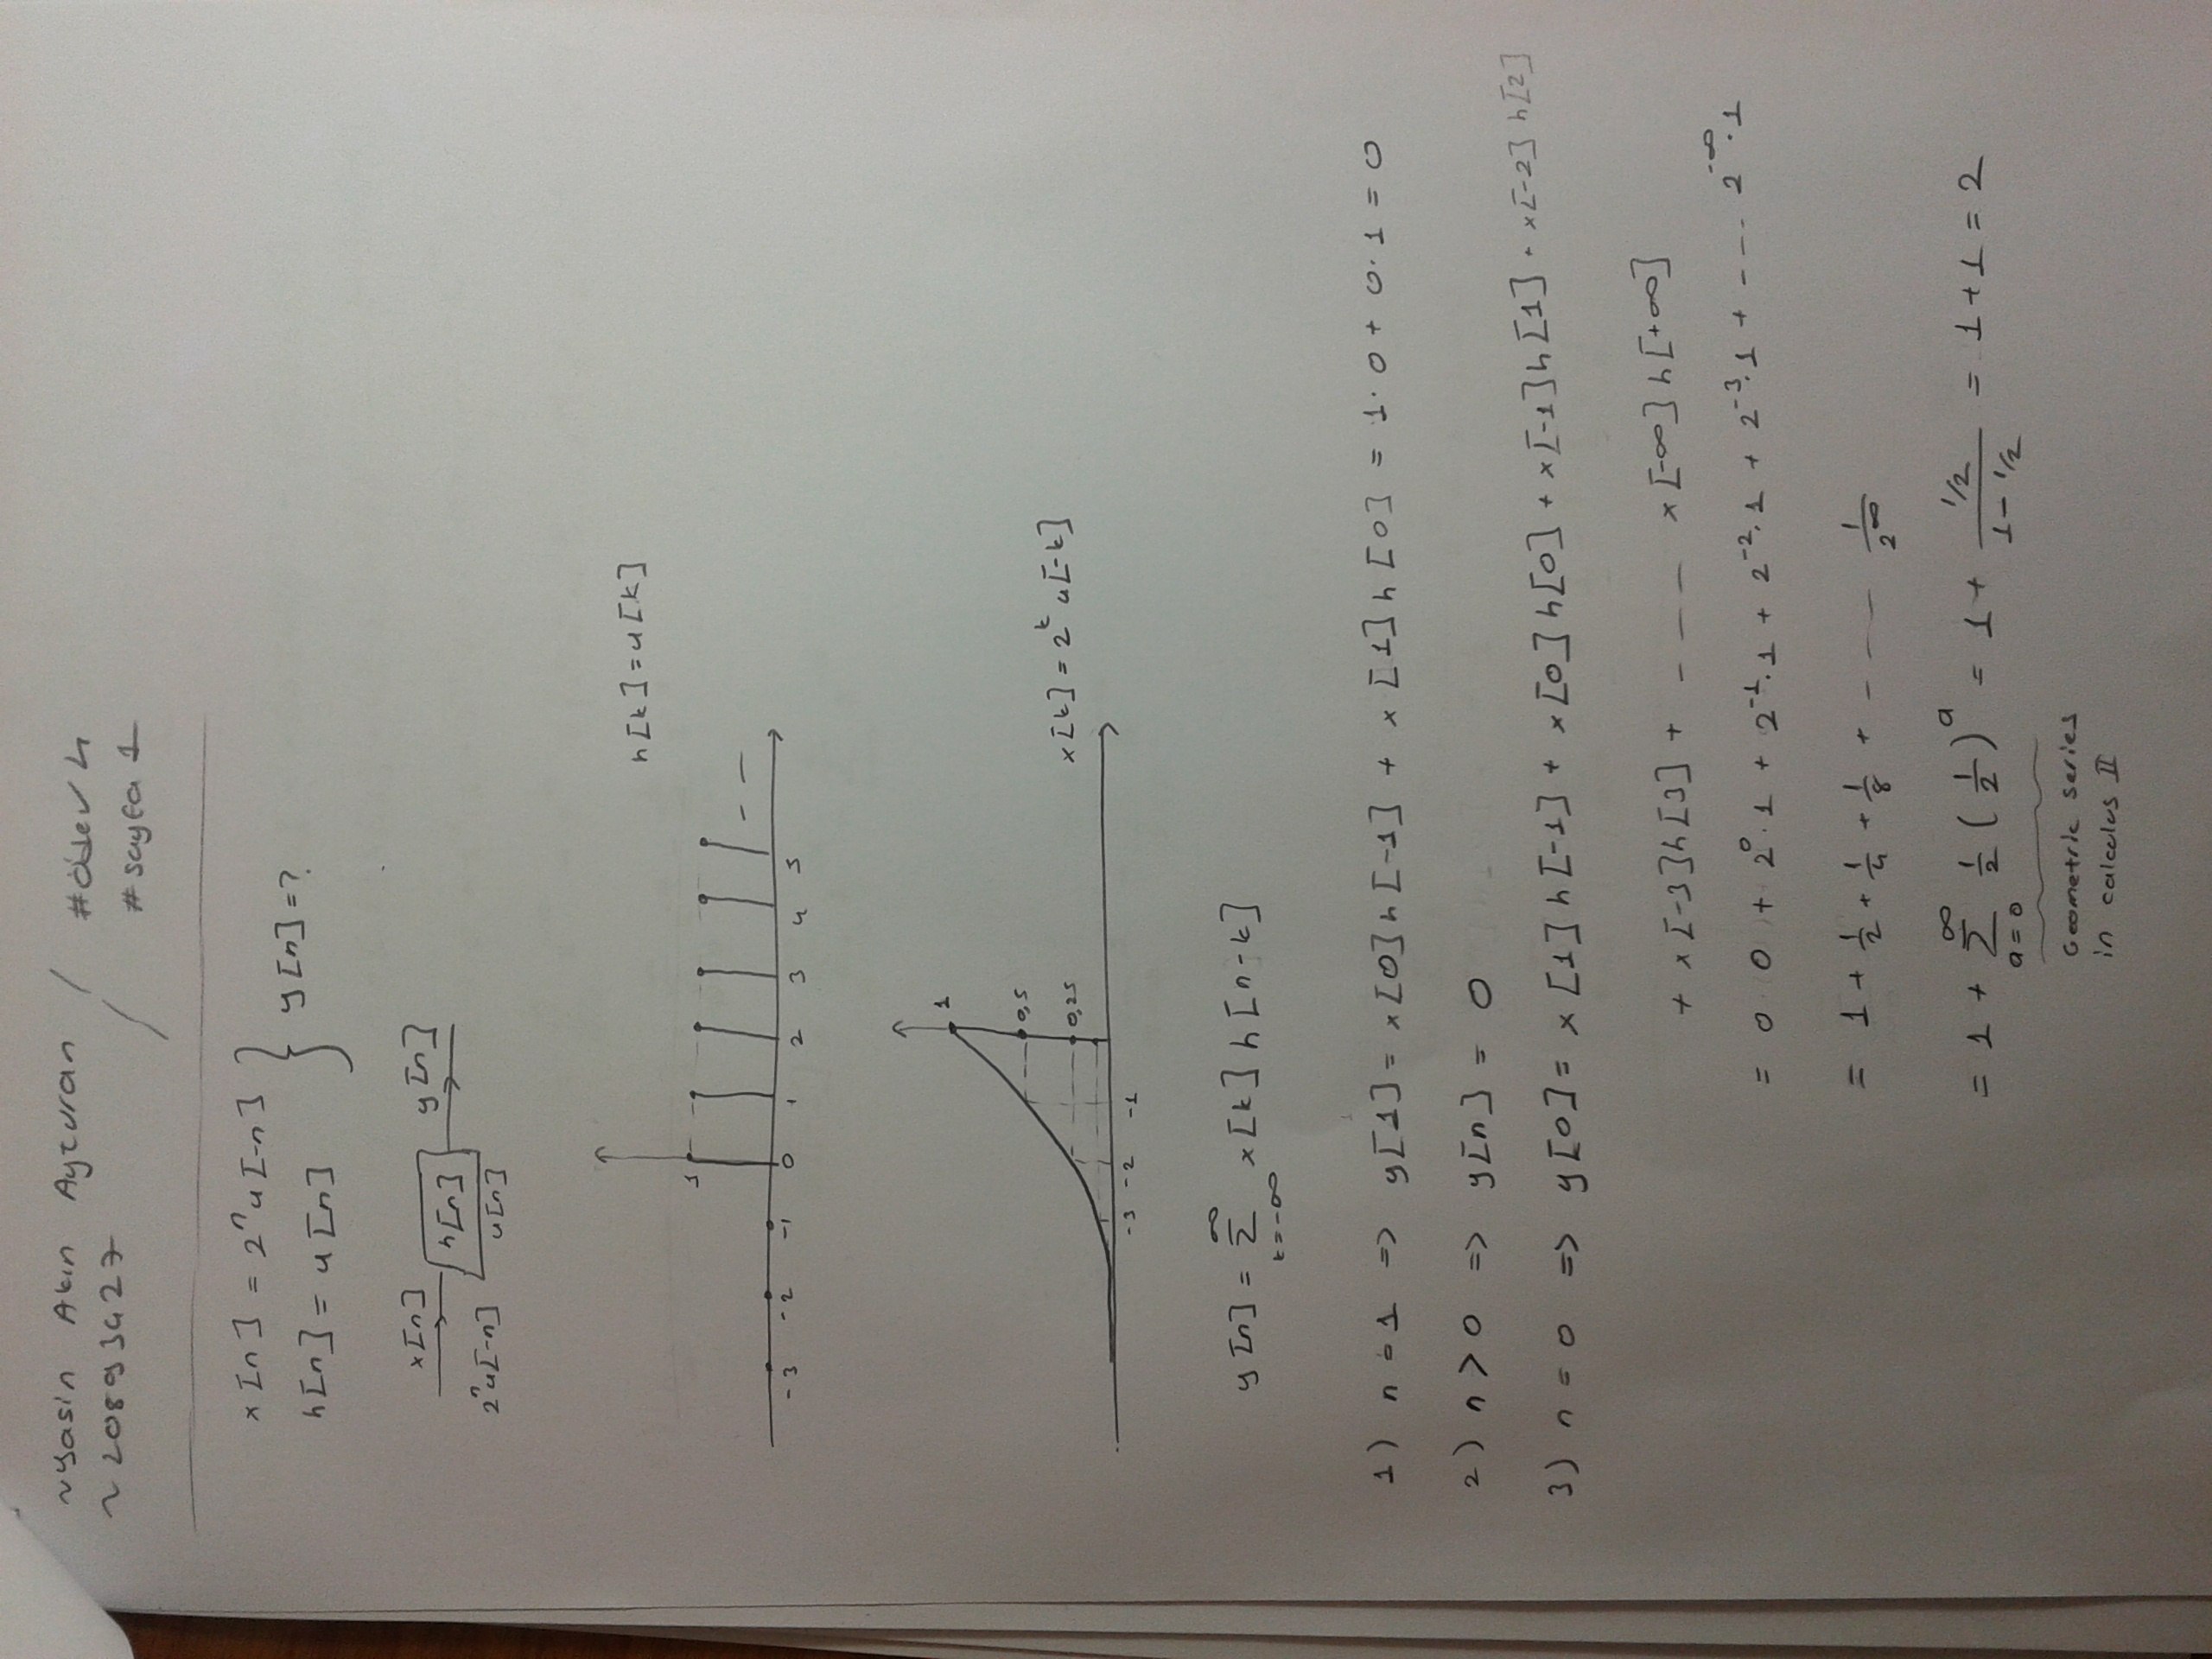 ~ Yasin Akın Ayturan / #ödev 4
~ 20893427 / #sayfa 1
x[n] = 2ⁿu[-n]
h[n] = u[n] } y[n]=?
x[n] h[n] y[n]
2ⁿu[-n] u[n]
h[k]=u[k]
1
-3 -2 -1 0 1 2 3 4 5
x[k]=2ᵏu[-k]
1
0,5
0,25
-3 -2 -1
y[n] = ∞Σk=-∞ x[k]h[n-k]
1) n=1 => y[1]= x[0]h[-1] + x[1]h[0] = 1.0 + 0.1 = 0
2) n>0 => y[n] = 0
3) n=0 => y[0]= x[1]h[-1] + x[0]h[0] + x[-1]h[1] + x[-2]h[2]
+ x[-3]h[3] + ---- x[-∞]h[+∞]
= 0.0 + 2⁰.1 + 2⁻¹.1 + 2⁻².1 + 2⁻³.1 + ---- 2^-∞.1
= 1 + 1/2 + 1/4 + 1/8 + ---- 1/2^∞
= 1 + ∞Σa=0 1/2 (1/2)^a = 1 + (1/2)/(1-1/2) = 1+1 = 2
Geometric series
in calculus II